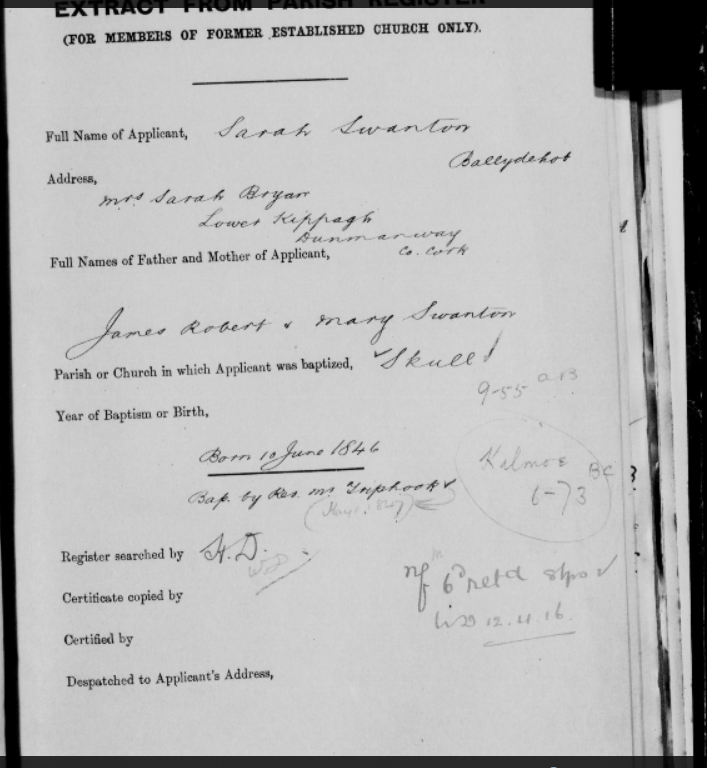 EXTRACT FROM PARISH REGISTER
(FOR MEMBERS OF FORMER ESTABLISHED CHURCH ONLY).
Full Name of Applicant, Sarah Swanton
Ballydehob
Address,
Mrs Sarah Bryan
Lower Kippagh
Dunmanway
Co. Cork
Full Names of Father and Mother of Applicant,
James Robert & Mary Swanton
Parish or Church in which Applicant was baptized, Skull
9-55
Year of Baptism or Birth,
Born 10 June 1846
Kilmoe
BC
6-73
Bap. by Rev. Mr Triphook
Register searched by H.D.
nf 6d retd stps
Certificate copied by
12.4.16.
Certified by
Despatched to Applicant's Address,